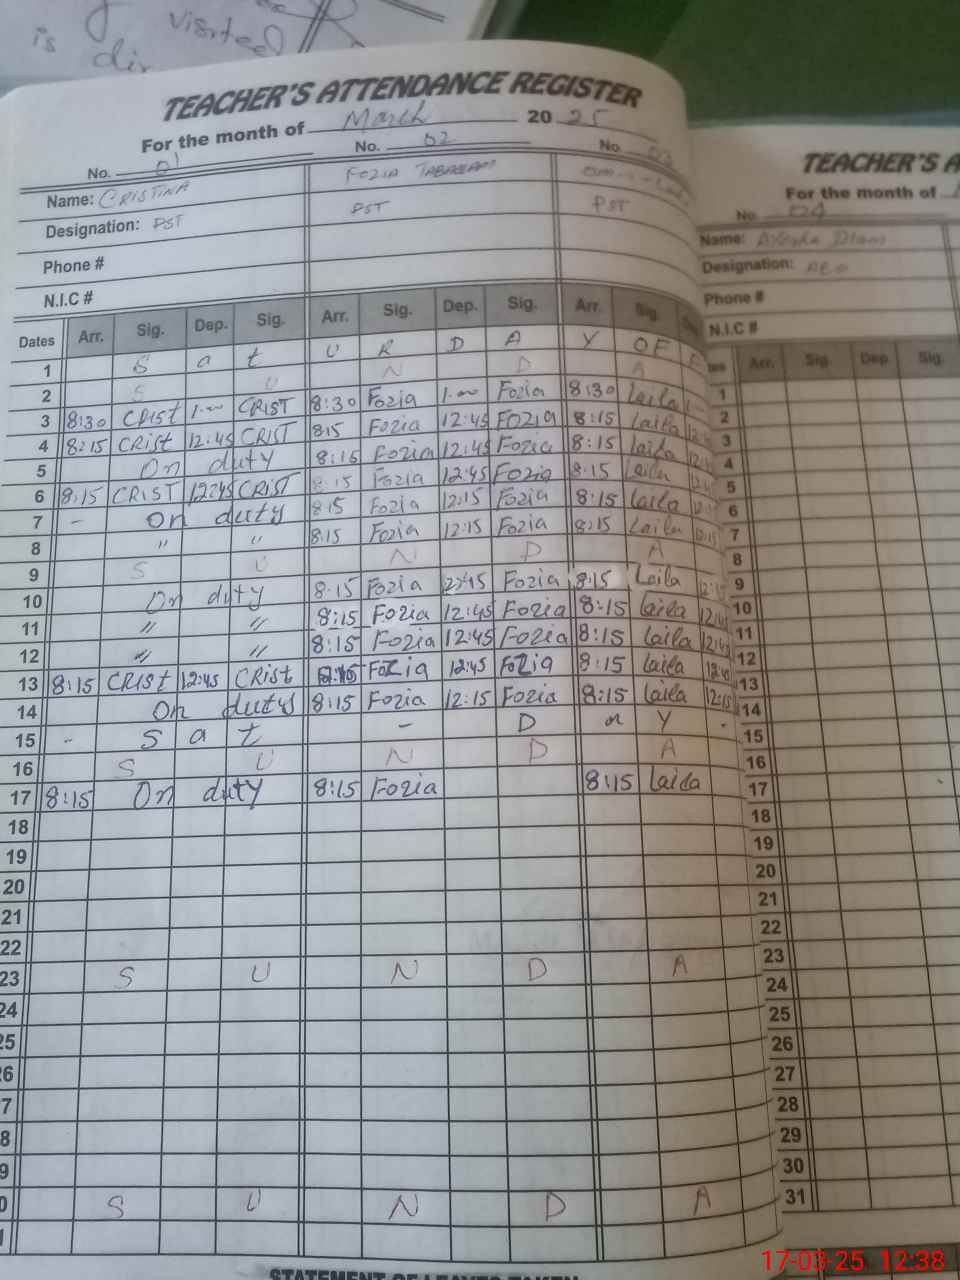 visited
is dir
TEACHER'S ATTENDANCE REGISTER
For the month of March 2025
No. 01 No. 02 No. 03
Name: CRISTINA FOZIA TABASSAM
Designation: PST PST PST
Phone #
N.I.C #
Dates Arr. Sig. Dep. Sig. Arr. Sig. Dep. Sig. Arr. Sig.
1 S a t U R D A Y OF F
2 S U N D A
3 8:30 CRIST 1:00 CRIST 8:30 Fozia 1:00 Fozia 8:30 Laila
4 8:15 CRist 12:45 CRIST 8:15 Fozia 12:45 FOZIA 8:15 Laila
5 On duty 8:15 Fozia 12:45 Fozia 8:15 Laila
6 8:15 CRIST 12:45 CRIST 8:15 Fozia 12:45 Fozia 8:15 Laila
7 - On duty 8:15 Fozia 12:15 Fozia 8:15 Laila
8 " " 8:15 Fozia 12:15 Fozia 8:15 Laila 12:15
9 S U N D A
10 On duty 8:15 Fozia Fozia 8:15 Laila
11 " " 8:15 Fozia 12:45 Fozia 8:15 laila
12 " " 8:15 Fozia 12:45 Fozia 8:15 laila
13 8:15 CRIst 12:45 CRist Fozia 12:45 Fozia 8:15 laila
14 On duty 8:15 Fozia 12:15 Fozia 8:15 laila 12:15
15 - S a t - D a Y -
16 S U N D A
17 8:15 On duty 8:15 Fozia 8:15 laila
18
19
20
21
22
23 S U N D A
24
25
26
7
8
9
0 S U N D A
1
STATEMENT OF LEAVES TAKEN
TEACHER'S A
For the month of
No. 04
Name: Ayesha
Designation:
Phone #
N.I.C #
tes Arr. Sig. Dep. Sig.
1
2
3
4
5
6
7
8
9
10
11
12
13
14
15
16
17
18
19
20
21
22
23
24
25
26
27
28
29
30
31
17-03-25 12:38